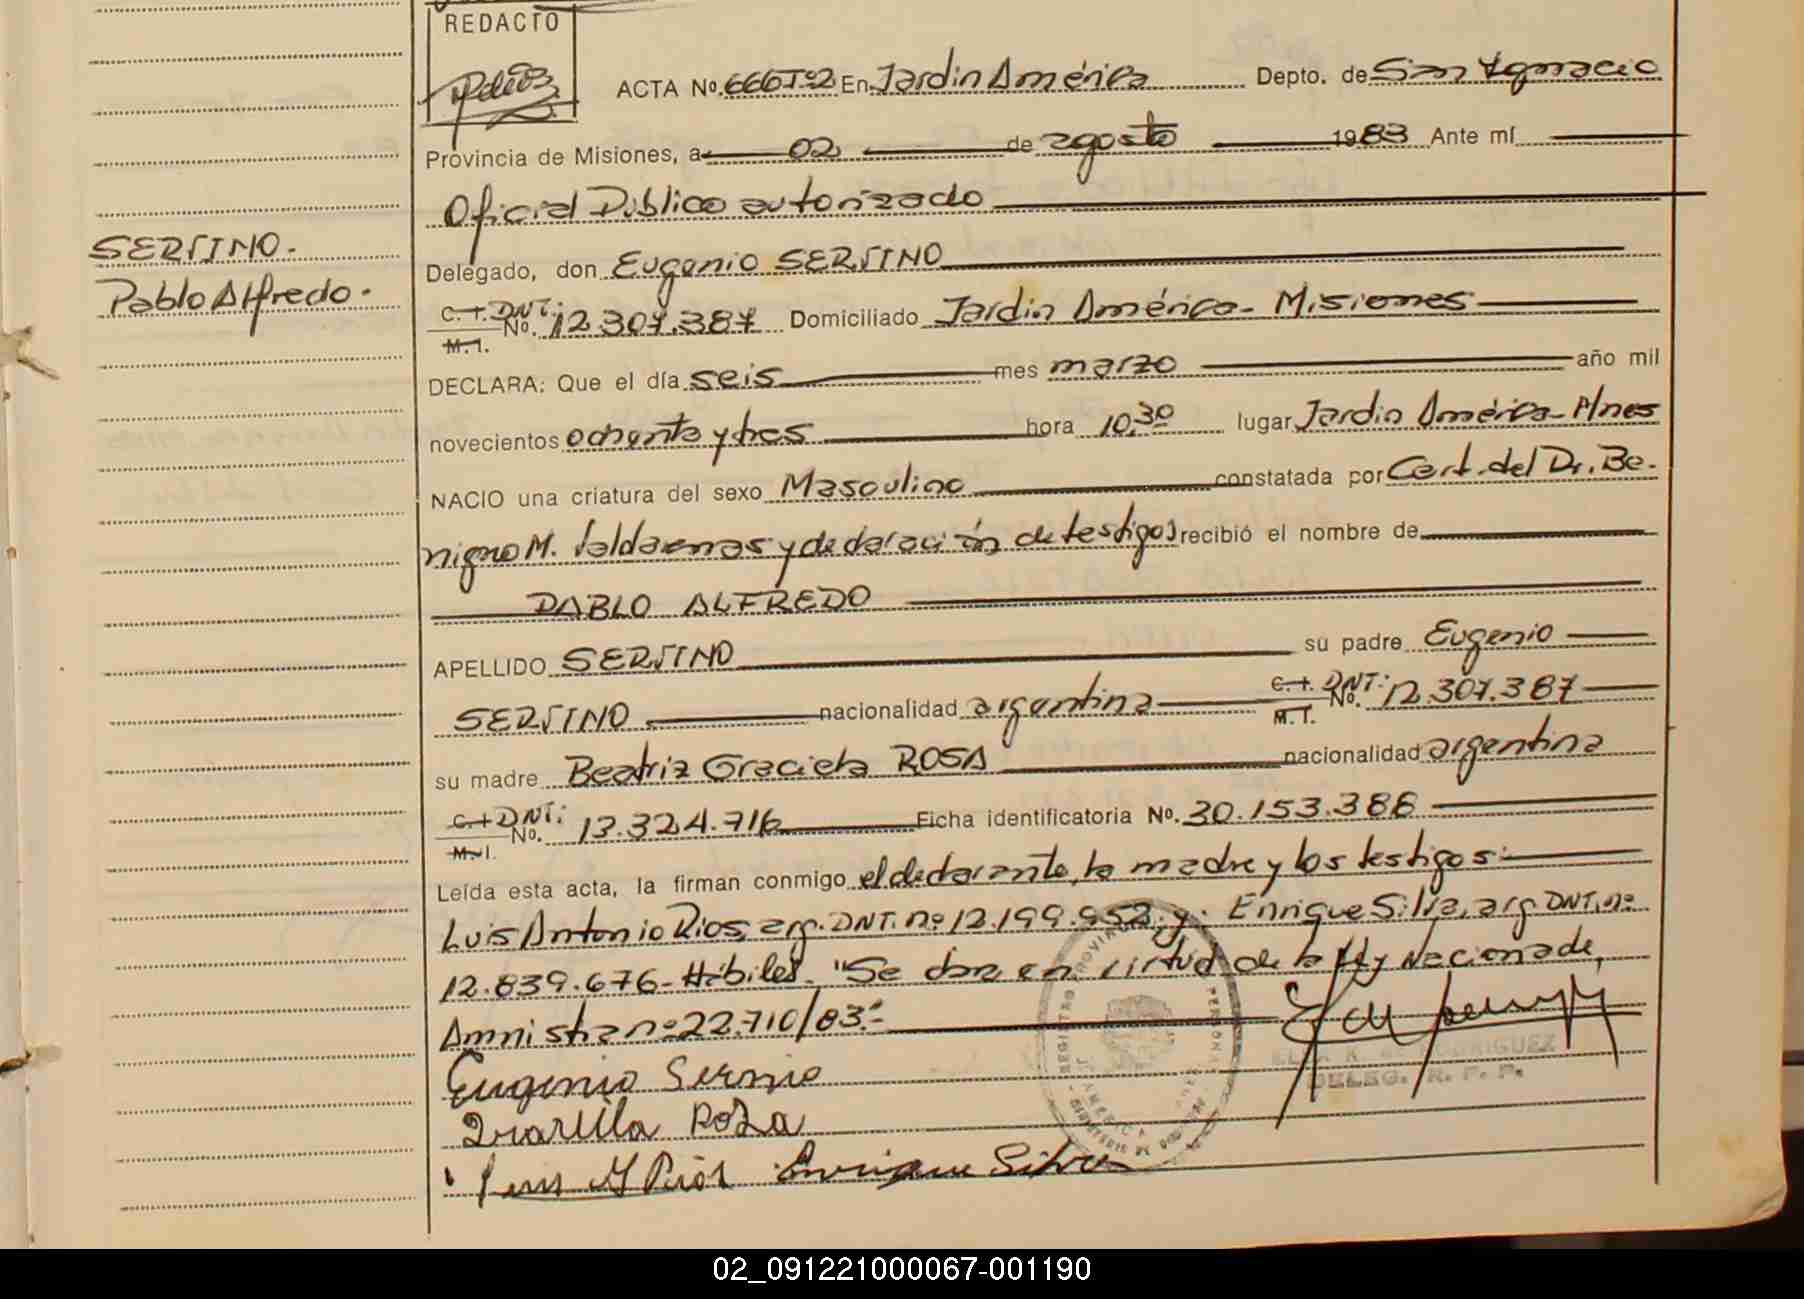 REDACTO
ACTA No. 666Tº2 En Jardin América Depto. de San Ignacio
Provincia de Misiones, a 02 de agosto 1983 Ante mí
Oficial Público autorizado
SERSINO.
Delegado, don Eugenio SERSINO
Pablo Alfredo.
C. I. DNI: No. 12.307.387 Domiciliado Jardin América - Misiones
M. I.
DECLARA: Que el día seis mes marzo año mil
novecientos ochenta y tres hora 10,30 lugar Jardin América - Mnes
NACIO una criatura del sexo Masculino constatada por Cert. del Dr. Be-
nigno M. y declaración de testigos recibió el nombre de
PABLO ALFREDO
APELLIDO SERSINO su padre Eugenio
SERSINO nacionalidad argentina C. I. DNI: No. 12.307.387
M. I.
su madre Beatriz Graciela ROSA nacionalidad argentina
C. I DNI: No. 13.324.716 Ficha identificatoria No. 30.153.388
M. I.
Leída esta acta, la firman conmigo el declarante, la madre y los testigos:
Luis Antonio Rios, arg. DNI. nº 12.199.952; y. Enrique Silva, arg DNI. nº
12.839.676 - Hábiles. "Se labra en virtud de la ley Nacional de,
Amnistia nº 22.710/83."-
Eugenio Sersino
Rosa
Luis A Rios Enrique Silva
REGISTRO PROVINCIAL DE LAS PERSONAS
RODRIGUEZ
DELEG. R. P. P.
02_091221000067-001190